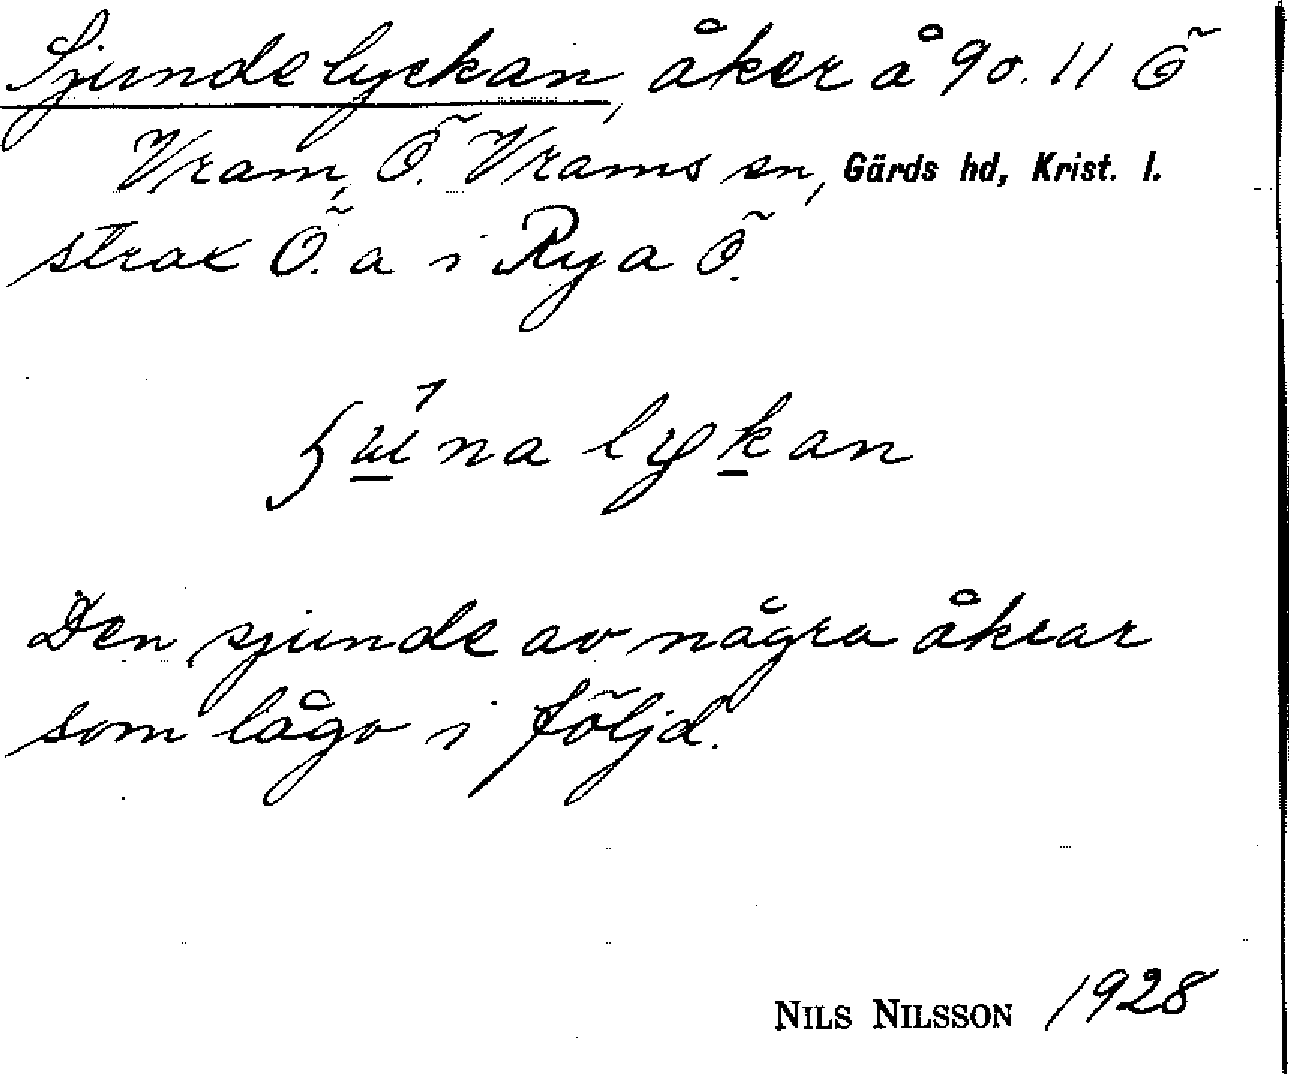 Sjundelyckan, åker å 9 o. 11 Ö
Vram, Ö. Vrams sn, Gärds hd, Krist. l.
strax Ö. a i Rya Ö.
na lykan
Den sjunde av några åkrar
som lågo i följd.
NILS NILSSON 1928